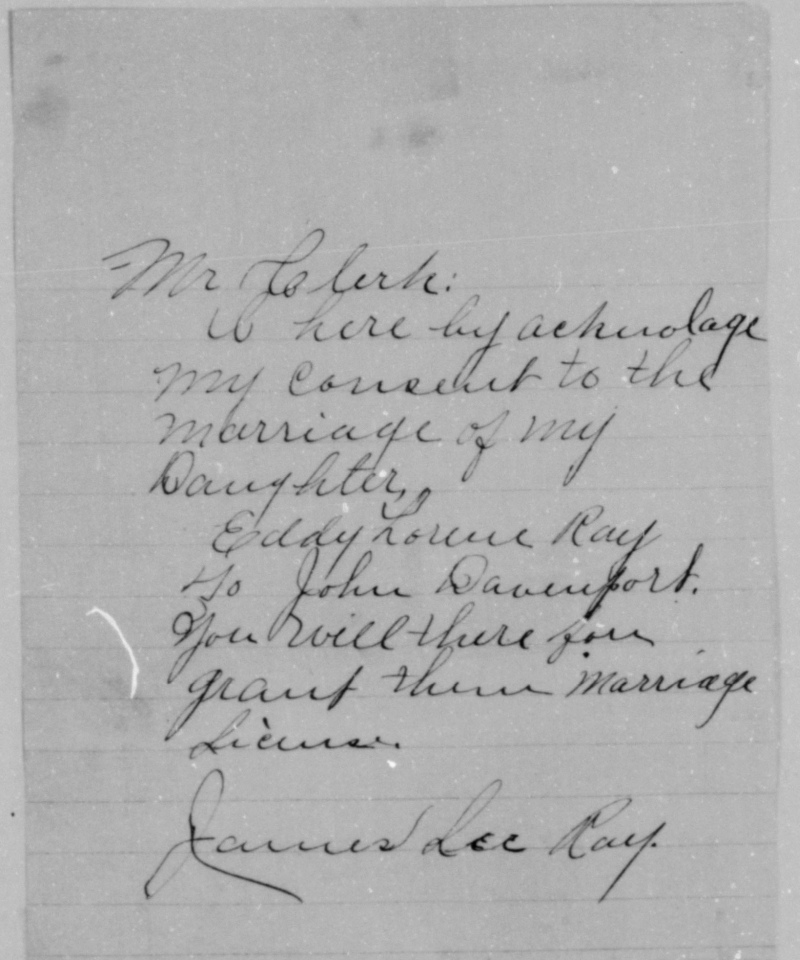 Mr Clerk:
I here by acknolage
my consent to the
marriage of my
Daughter,
Eddy Lorene Ray
to John Davenport.
You will there for
grant them marriage
License.
James Lee Ray.